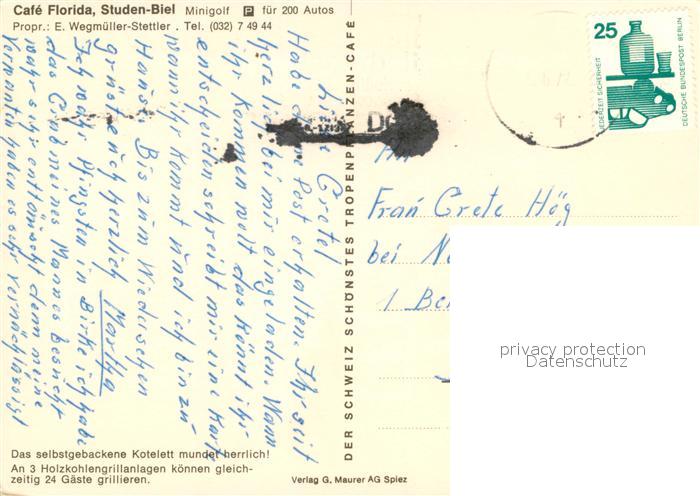 Café Florida, Studen-Biel Minigolf P für 200 Autos
Propr.: E. Wegmüller-Stettler . Tel. (032) 7 49 44
Liebe Gretel
Habe deine Post erhalten. Ihr seit
herzl. bei mir eingeladen. Wann
ihr kommen wollt das könnt ihr
entscheiden schreibt mir eine Karte
wann ihr kommt und ich bin zu
Hause. Bis zum Wiedersehen
grüst euch herzlich Martha
Ich war Pfingsten in Birke ich habe
das Grab meines Mannes besucht
war sehr enttäuscht denn meine
Verwanten haben es sehr vernachlässigt
Das selbstgebackene Kotelett mundet herrlich!
An 3 Holzkohlengrillanlagen können gleich-
zeitig 24 Gäste grillieren.
DER SCHWEIZ SCHÖNSTES TROPENPFLANZEN-CAFÉ
Verlag G. Maurer AG Spiez
25
JEDERZEIT SICHERHEIT
DEUTSCHE BUNDESPOST BERLIN
An
Frau Grete Hög
bei
1 Ber
privacy protection
Datenschutz